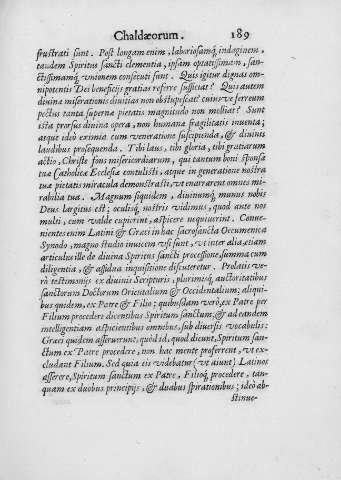 Chaldæorum. 189
frustrati sunt. Post longam enim, laboriosamq; indaginem,
tandem Spiritus sancti clementia, ipsam optatissimam, san-
ctissimamq; vnionem consecuti sunt. Quis igitur dignas om-
nipotenti Dei beneficijs gratias referre sufficiat? Quis autem
diuinæ miserationis diuitias non obstupescat? cuius ve ferreum
pectus tanta supernæ pietatis magnitudo non molliat? Sunt
ista prorsus diuina opera, non humanæ fragilitatis inuenta;
atque ideò eximia cum veneratione suscipienda, & diuinis
laudibus prosequenda. Tibi laus, tibi gloria, tibi gratiarum
actio, Christe fons misericordiarum, qui tantum boni sponsæ
tuæ Catholicæ Ecclesiæ contulisti, atque in generatione nostra
tuæ pietatis miracula demonstrasti, vt enarrent omnes mi-
rabilia tua. Magnum siquidem, diuinumq; munus nobis
Deus largitus est; oculisq; nostris vidimus, quod ante nos
multi, cum valde cupierint, aspicere nequiuerint. Conue-
nientes enim Latini & Græci in hac sacrosancta Oecumenica
Synodo, magno studio inuicem vsi sunt, vt inter alia, etiam
articulus ille de diuina Spiritus sancti processione, summa cum
diligentia, & assidua inquisitione discuteretur. Prolatis ve-
rò testimonijs ex diuinis Scripturis, plurimisq; auctoritatibus
sanctorum Doctorum Orientalium & Occidentalium; aliqui-
bus quidem, ex Patre & Filio; quibusdam verò, ex Patre per
Filium procedere dicentibus Spiritum sanctum, & ad eandem
intelligentiam aspicientibus omnibus, sub diuersis vocabulis:
Græci quidem asseruerunt, quod id, quod dicunt, Spiritum san-
ctum ex Patre procedere, non hac mente proferrent, vt ex-
cludant Filium. Sed quia eis videbatur (vt aiunt) Latinos
asserere, Spiritum sanctum ex Patre, Filioq; procedere, tan-
quam ex duobus principijs, & duabus spirationibus; ideò ab-
stinue-